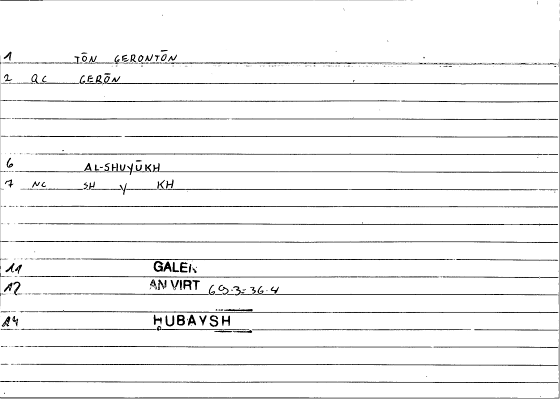 1 TŌN GERONTŌN
2 QC GERŌN
6 AL-SHUYŪKH
7 NC SH Y KH
11 GALEN
12 AN VIRT
14 ḤUBAYSH